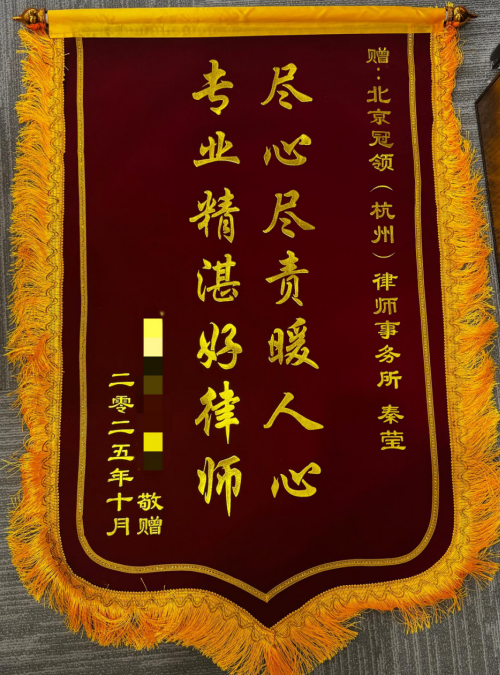 赠：北京冠领（杭州）律师事务所 秦莹
尽心尽责暖人心
专业精湛好律师
敬赠
二零二五年十月